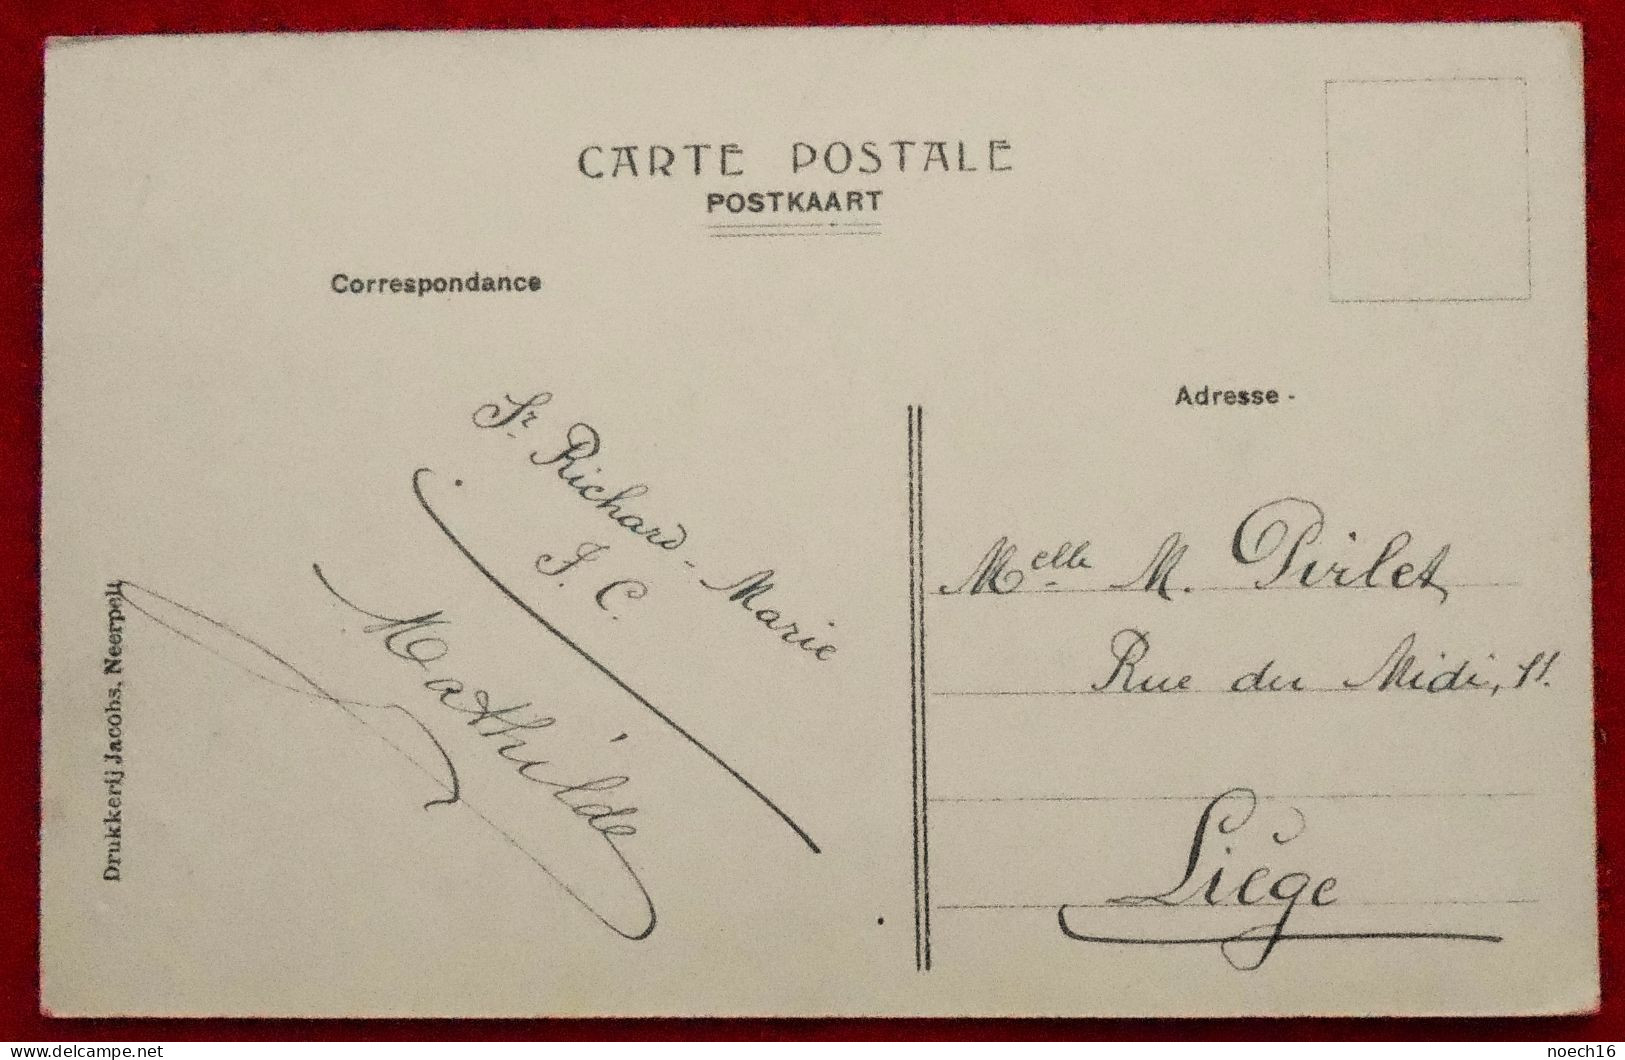 CARTE POSTALE
POSTKAART
Correspondance
Sr. Richard-Marie
J. C.
Mathilde
Drukkerij Jacobs, Neerpelt
Adresse -
Melle M. Pirlet
Rue du Midi, 11.
Liège
delcampe.net
noech16